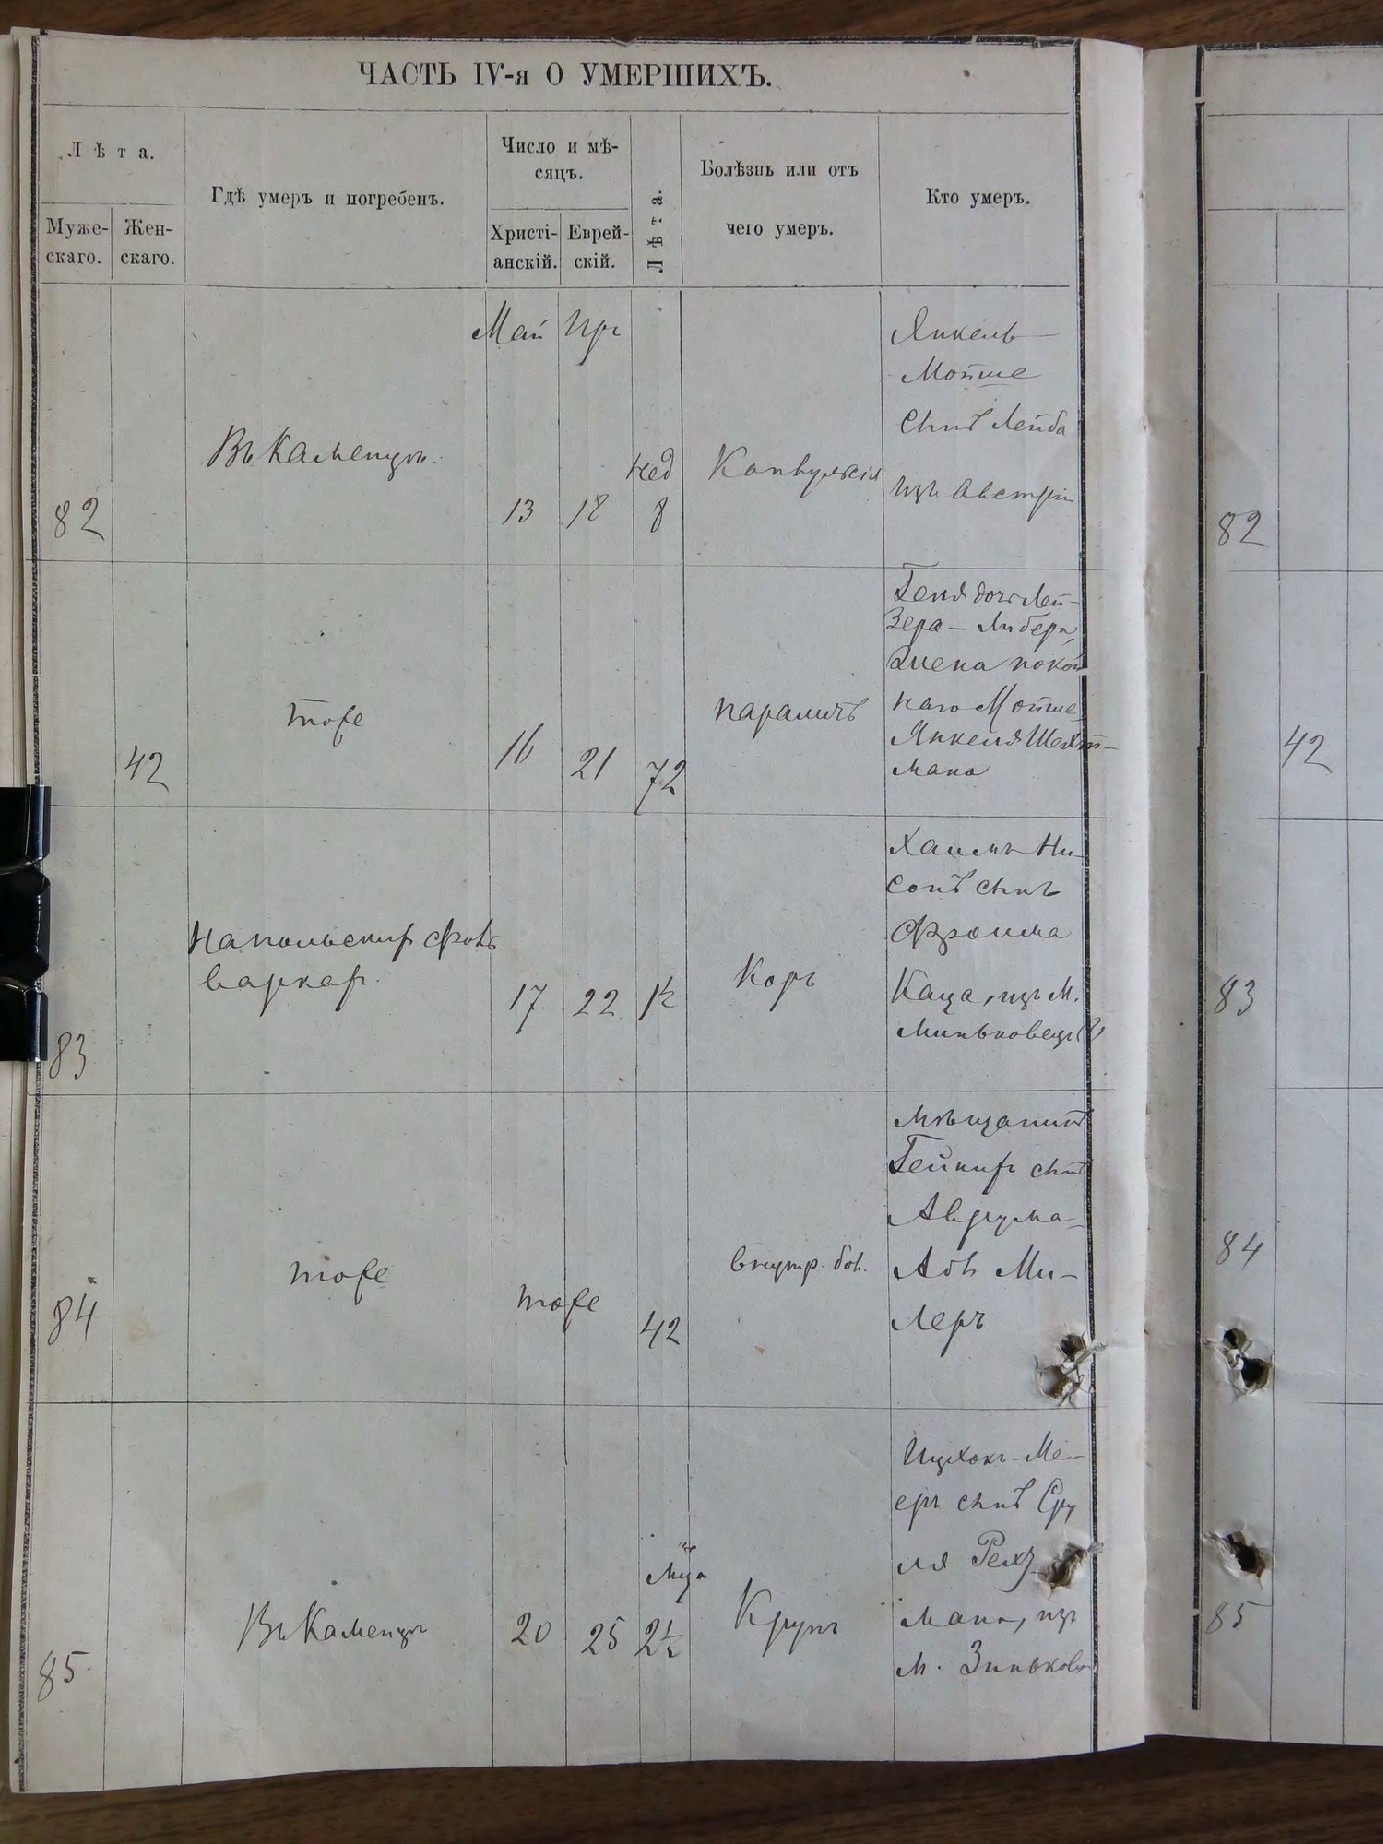 ЧАСТЬ IV-я О УМЕРШИХЪ.
Лѣта.
Муже-
скаго.
Жен-
скаго.
Гдѣ умеръ и погребенъ.
Число и мѣ-
сяцъ.
Христі-
анскій.
Еврей-
скій.
Лѣта.
Болѣзнь или отъ
чего умеръ.
Кто умеръ.
Май Иръ
82
Въ Каменцѣ
13
18
нед
8
Конвульсія
Янкель
Мотте
сынъ Лейба
изъ Австріи
82
42
тоже
16
21
72
параличъ
Геня дочь Лей-
зера-Либера,
жена покой
наго Мотте
Янкеля Шехт-
мана
42
83
На польскихъ фоль
варках.
17
22
1½
Корь
Хаимъ Ни-
сонъ сынъ
Фроима
Каца, изъ м.
Миньковецъ
83
84
тоже
тоже
42
внутр. бол.
мѣщанинъ
сынъ
Аврума-
Аба Ми-
леръ
84
85
Въ Каменцѣ
20
25
мца
2½
Крупъ
Ицхокъ-Ме-
еръ сынъ Сру
ля
мана, изъ
м. Зинькова
85